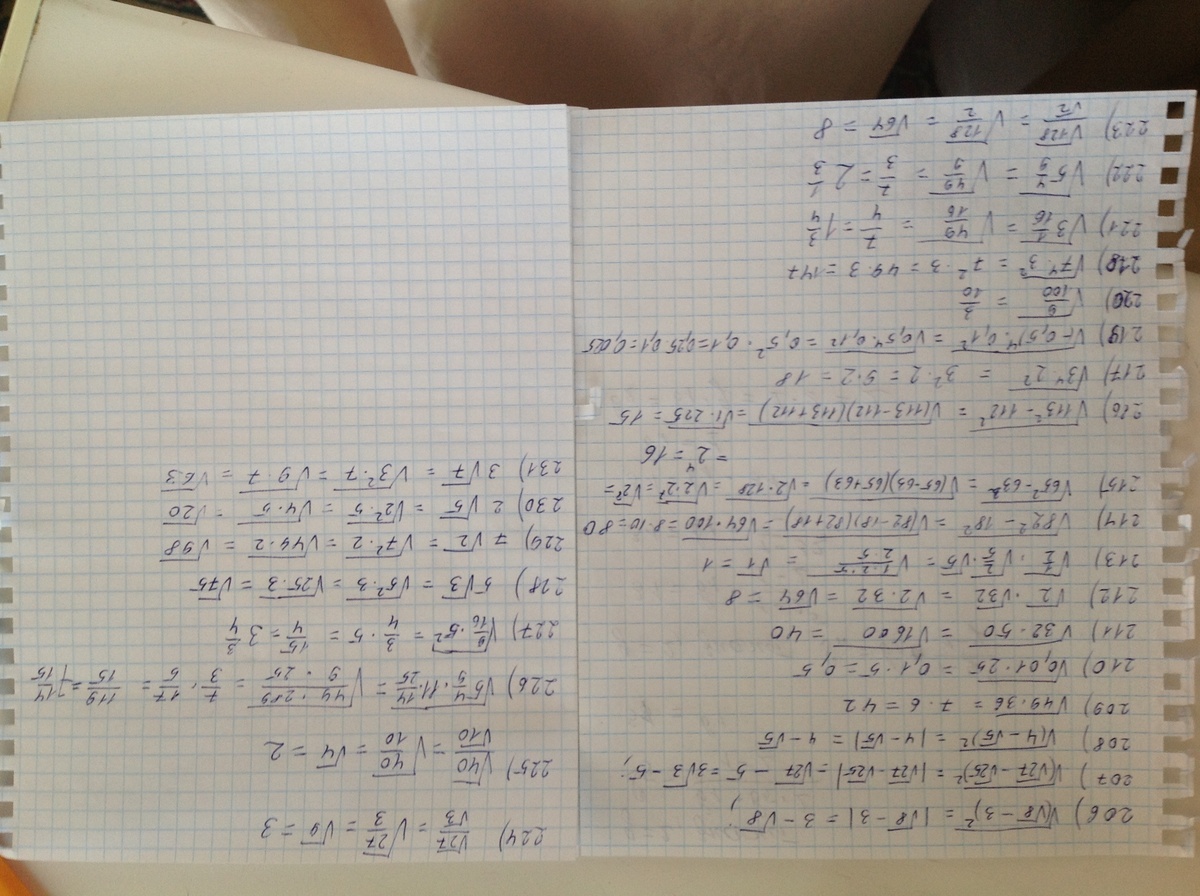 206) √(√8 − 3)² = |√8 − 3| = 3 − √8;
207) √(√27 − √25)² = |√27 − √25| = √27 − 5 = 3√3 − 5;
208) √(4 − √5)² = |4 − √5| = 4 − √5
209) √49·36 = 7·6 = 42
210) √0,01·25 = 0,1·5 = 0,5
211) √32·50 = √1600 = 40
212) √2·√32 = √2·32 = √64 = 8
213) √1/2·√2/5·√5 = √1·2·5/2·5 = √1 = 1
214) √82² − 18² = √(82−18)(82+18) = √64·100 = 8·10 = 80
215) √65² − 63² = √(65−63)(65+63) = √2·128 = √2·2⁷ = √2⁸ =
= 2⁴ = 16
216) √113² − 112² = √(113−112)(113+112) = √1·225 = 15
217) √3⁴·2² = 3²·2 = 9·2 = 18
219) √(−0,5)⁴·0,1² = √0,5⁴·0,1² = 0,5²·0,1 = 0,25·0,1 = 0,025
220) √9/100 = 3/10
218) √7⁴·3² = 7²·3 = 49·3 = 147
221) √3 1/16 = √49/16 = 7/4 = 1 3/4
222) √5 4/9 = √49/9 = 7/3 = 2 1/3
223) √128/√2 = √128/2 = √64 = 8
224) √27/√3 = √27/3 = √9 = 3
225) √40/√10 = √40/10 = √4 = 2
226) √5 4/9·11 14/25 = √49·289/9·25 = 7/3·17/5 = 119/15 = 7 14/15
227) √9/16·5² = 3/4·5 = 15/4 = 3 3/4
228) 5√3 = √5²·3 = √25·3 = √75
229) 7√2 = √7²·2 = √49·2 = √98
230) 2√5 = √2²·5 = √4·5 = √20
231) 3√7 = √3²·7 = √9·7 = √63